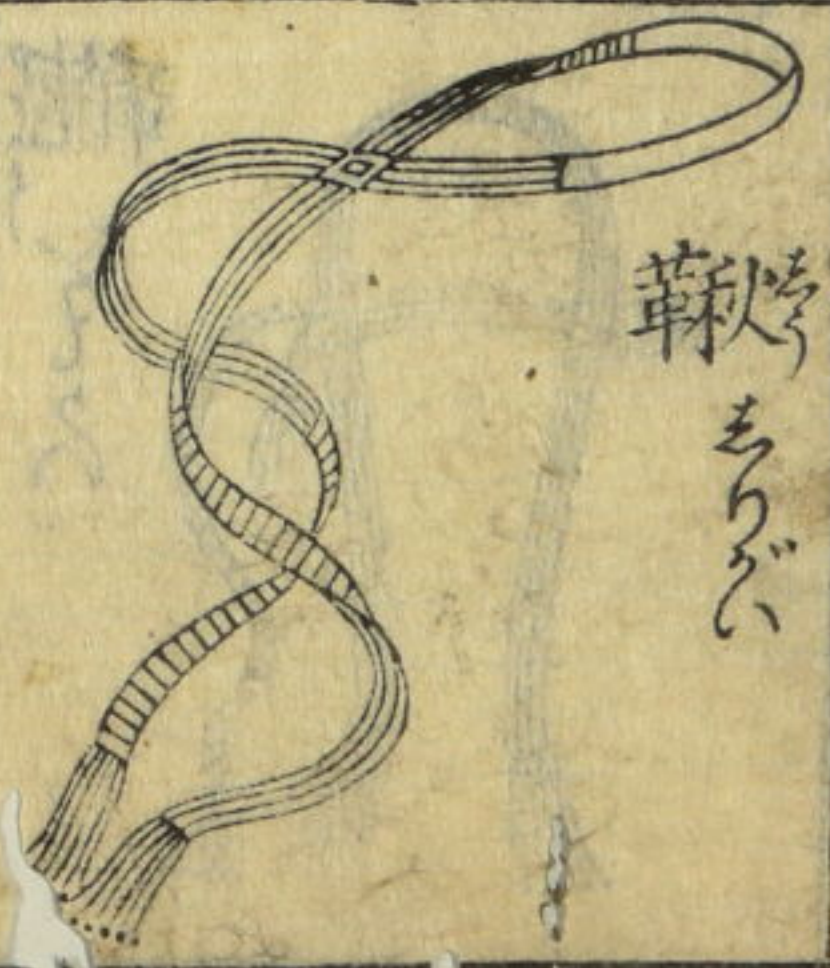 鞦
しう
しりがい